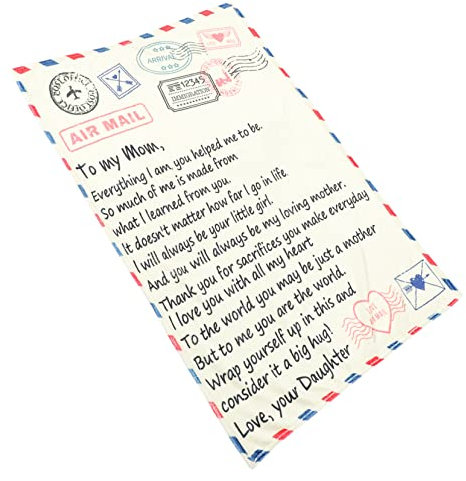 POST OFFICE
ARRIVAL
12345
IMMIGRATION
AIR MAIL
To my Mom,
Everything I am you helped me to be.
So much of me is made from
what I learned from you.
It doesn't matter how far I go in life.
I will always be your little girl.
And you will always be my loving mother.
Thank you for sacrifices you make everyday
I love you with all my heart
To the world you may be just a mother
But to me you are the world.
Wrap yourself up in this and
consider it a big hug!
Love, your Daughter